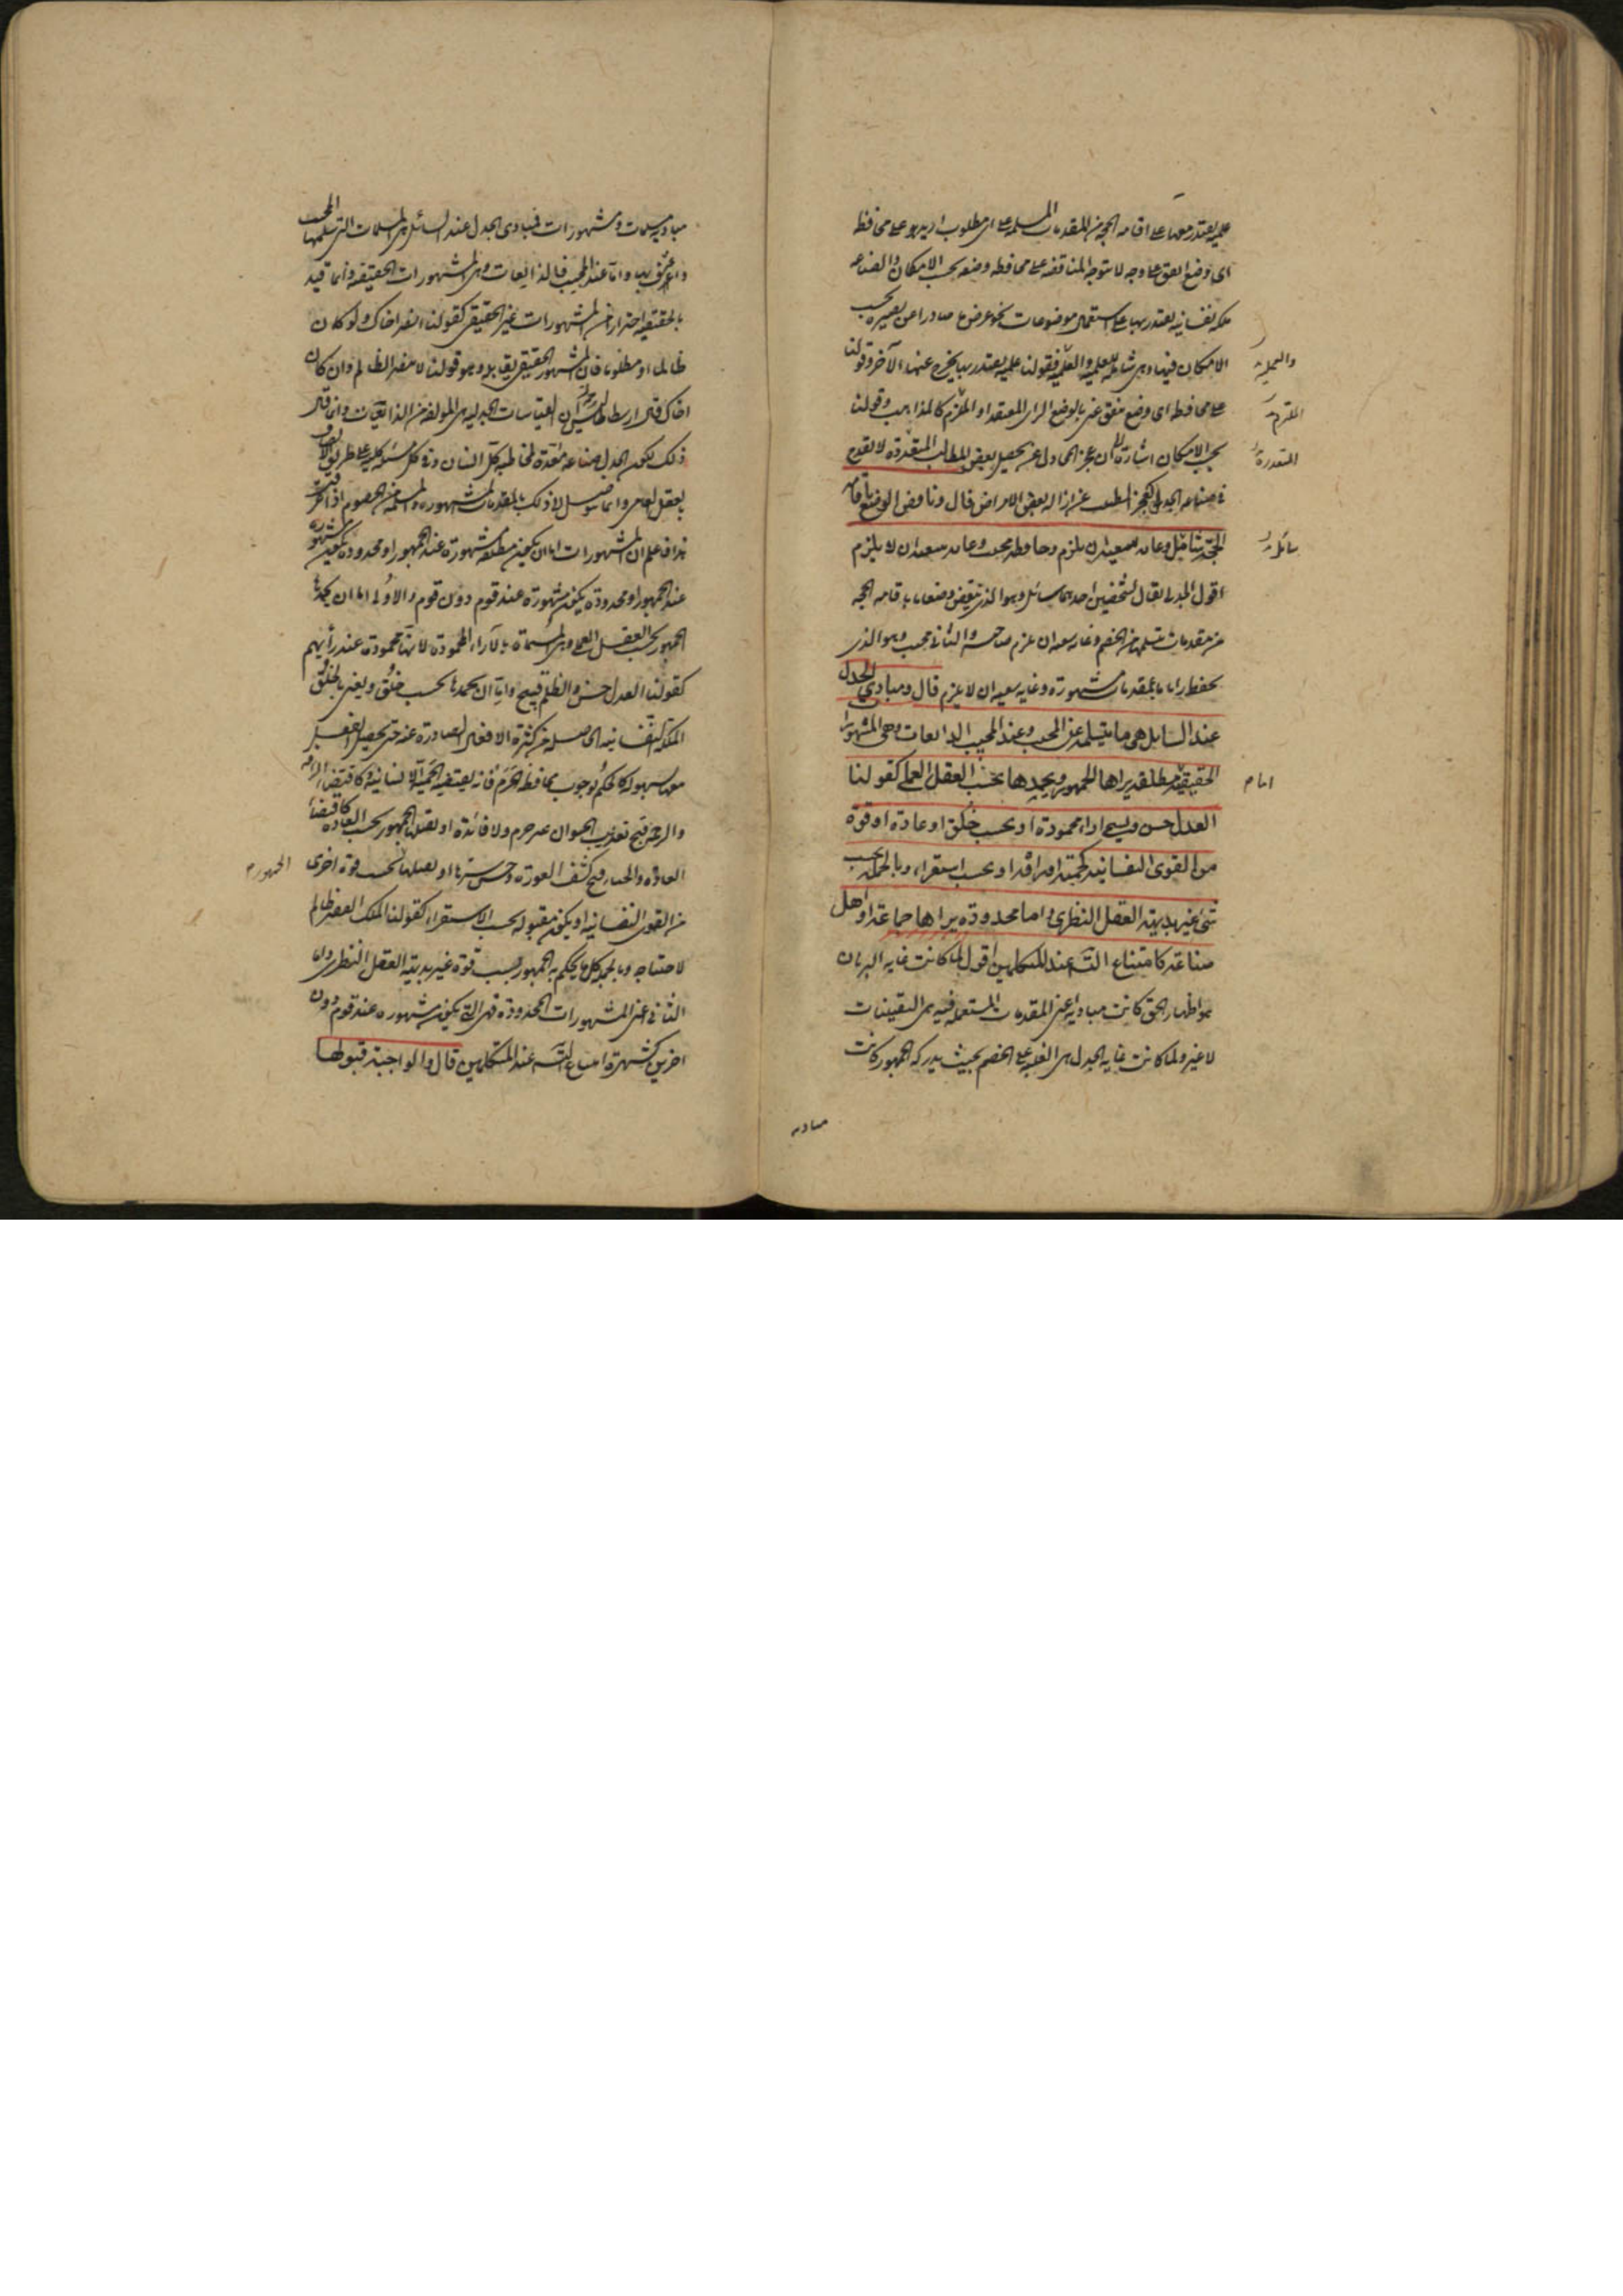 علمية يقتدر معها على اقامه الحجه من المقدمات المسلمه على اى مطلوب اريد وعلى محافظه
اى وضع اتفق على وجه لا تتوجه المناقضه على محافظه وضعه بحسب الامكان والصناعه
ملكه نفسانيه يقتدر بها على استعمال موضوعات نحو غرض ما صادرا عن بصيره بحسب
الامكان فيها وهى شامله للعلميه والعمليه فقولنا علميه يقتدر بها يخرج عنها الآخر وقولنا
على محافظه اى وضع اتفق عنى بالوضع الراى المعتقد او الملتزم كالمذاهب وقولنا
بحسب الامكان اشارة الى ان عجز المجادل عن تحصيل بعض المطالب المتعذرة لا يقدح
فى صناعه الجدل كعجز الطبيب عن ازاله بعض الامراض قال وناقض الوضع باقامه
الحجة سائل وغايته سعيه ان يلزم وحافظه مجيب وغايته سعيه ان لا يلزم
اقول الجدلى يقال لشخصين احدهما سائل وهو الذى ينقض وضعا ما باقامه الحجه
من مقدمات يتسلمها من الخصم وغايه سعيه ان يلزم صاحبه والثانى مجيب وهو الذى
يحفظ رايا ما بمقدمات مشهورة وغايه سعيه ان لا يلزم قال ومبادى الجدل
عند السايل هى ما يتسلمه عن المجيب وعند المجيب الذايعات وهى المشهورات
الحقيقية مطلقه يراها الجمهور ويحمدها بحسب العقل العملى كقولنا
العدل حسن ويسمى اراء محمودة او بحسب خلق او عادة او قوة
من القوى النفسانيه كحمية او رافة او بحسب استقراء وبالجمله بحسب
شئ غير بديهة العقل النظرى واما محدودة يراها جماعة او اهل
صناعة كامتناع التسـ عند المتكلمين اقول لما كانت غايه البرهان
هو اظهار الحق كانت مباديه اعنى المقدمات المستعمله فيه هى اليقينيات
لا غير ولما كانت غايه الجدل هى الغلبه على الخصم بحيث يدركه الجمهور كانت
مباديه
والعمليه
الملتزم
المتعذرة
سائل
امام
مباديه مسلمات ومشهورات فمبادى الجدل عند السائل هى المسلمات التى يتسلمها المجيب
واعترف بها واما عند المجيب فالذايعات وهى المشهورات الحقيقيه وانما قيد
بالحقيقيه احترازا عن المشهورات غير الحقيقى كقولنا انصر اخاك ولو كان
ظالما او مظلوما فان المشهور الحقيقى يقابله وهو قولنا لا ينصر الظالم وان كان
اخاك قال ارسطاطاليس ان القياسات الجدليه هى المولفه من الذايعات وانما قال
ذلك لكون الجدل صناعه معدة لمخاطبه كل انسان وفى كل مسئله كليه على طريق
بعقل العامى وانما يتوصل لا ذلك بالمقدمات المشهوره والمسلمه من الخصوم اذا
هذا فاعلم ان المشهورات اما ان يكون مطلقه مشهورة عند الجمهور او محدوده يكون مشهوره
عند الجمهور او محدودة يكون مشهورة عند قوم دون قوم والاولى اما ان يحمدها
الجمهور بحسب العقل العملى وهى المسماة بالآراء المحمودة لانها محمودة عند رأيهم
كقولنا العدل حسن والظلم قبيح واما ان يحمدها بحسب خلق ويعنى بالخلق
الملكه النفسانيه الحاصله من كثرة الافعال الصادرة عنه حتى يحصل الفعل
معها بسهوله كالحكم بوجوب محافظه الحرم فانه يقتضيه الحمية الانسانيه وكاقتضاء الرافه
والرحمه قبح تعذيب الحيوان عن جرم ولا فائدة او يقبلها الجمهور بحسب العاده كاقتضاء
العادة والحياء قبح كشف العورة وحسن سترها او يقبلها بحسب قوة اخرى
من القوى النفسانيه او يكون مقبوله بحسب الاستقراء كقولنا الملك الفقير ظالم
لاحتياجه وبالجمله كل ما يحكم به الجمهور بحسب قوة غير بديهة العقل النظرى وان
الثانى اعنى المشهورات المحدودة فهى التى يكون مشهوره عند قوم دون
اخرين كشهرة امتناع التسـ عند المتكلمين قال والواجبة قبولها
الجمهور